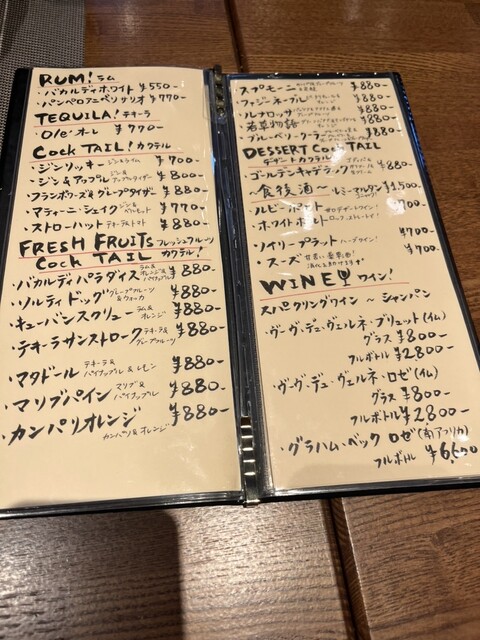 RUM! ラム
・バカルディホワイト ¥550-
・パンペロアニベリサリオ ¥770-
TEQUILA! テキーラ
・Ole! オレ ¥770-
Cock TAIL! カクテル
・ジンリッキー ジン&ライム ¥700-
・ジン&アップル ジン&アップルタイザー ¥800-
・フランボワーズ&グレープタイザー ¥880-
・マティーニ・シェイク ジン&ベルモット ¥770-
・ストローハット テキーラ&トマト ¥880-
FRESH FRUITS フレッシュフルーツ
Cock TAIL カクテル!
・バカルディパラダイス ラム&オレンジ&パイナップル ¥880-
・ソルティドッグ グレープフルーツ&ウォッカ ¥880-
・キューバンスクリュー ラム&オレンジ ¥880-
・テキーラサンストローク テキーラ&グレープフルーツ ¥880-
・マタドール テキーラ&パイナップル&レモン ¥880-
・マリブパイン マリブ&パイナップル ¥880-
・カンパリオレンジ カンパリ&オレンジ ¥880-
・スプモーニ ¥880-
・ファジーネーブル ¥880-
・ルナロッサ ¥880-
・若草物語 ¥880-
・ブルーベリークーラー ¥880-
DESSERT Cock TAIL
デザートカクテル
・ゴールデンキャデラック ¥880-
〜食後酒〜 レミーマルタン ¥1,500-
・ルビーポート 甘口デザートワイン! ¥700-
・ホワイトポート ロック、ストレート!
・ソイリープラット ハーブワイン! ¥700-
・スーズ ¥700-
WINE ワイン!
スパークリングワイン 〜 シャンパン
・ヴーヴ・デュ・ヴェルネ・ブリュット(仏)
グラス ¥800-
フルボトル ¥2800-
・ヴーヴ・デュ・ヴェルネ・ロゼ(仏)
グラス ¥800-
フルボトル ¥2800-
・グラハム・ベック ロゼ(南アフリカ)
フルボトル ¥6,600